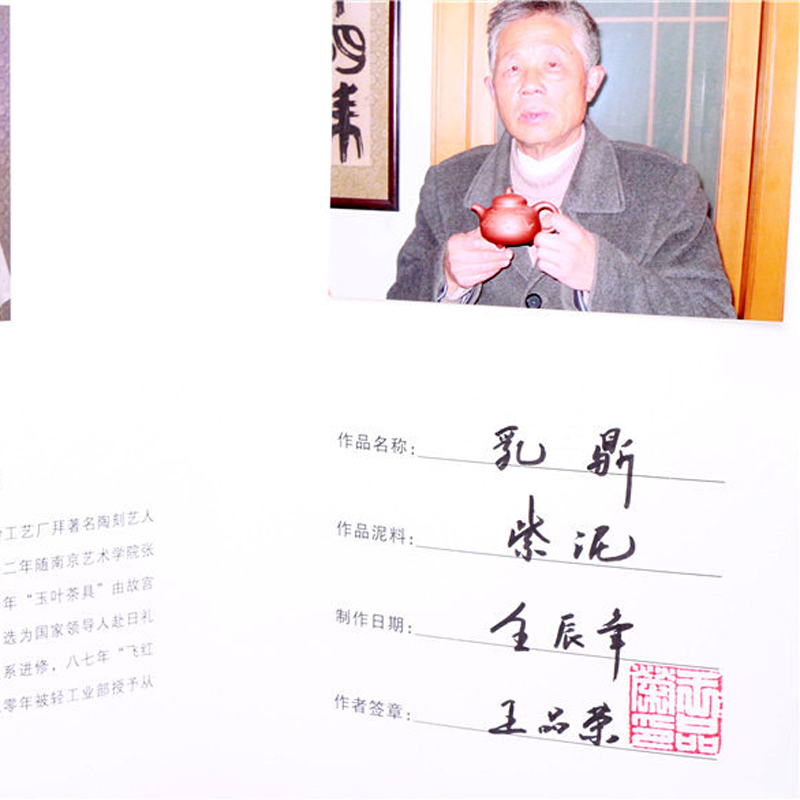 作品名称: 乳鼎
作品泥料: 紫泥
制作日期: 壬辰年
作者签章: 王品荣
工艺厂拜著名陶刻艺人
二年随南京艺术学院张
年“玉叶茶具”由故宫
选为国家领导人赴日礼
系进修,八七年“飞红
零年被轻工业部授予从